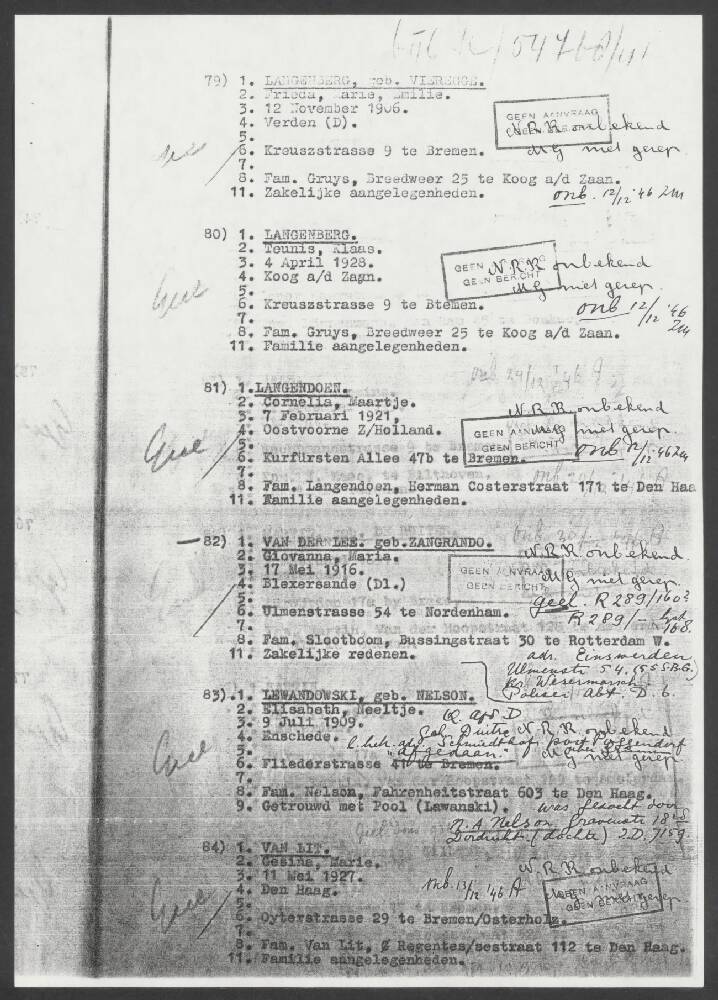 79) 1. LANGENBERG, geb. VIEREGGE.
2. Frieda, Marie, Emilie.
3. 12 November 1906.
4. Verden (D).
5.
6. Kreuszstrasse 9 te Bremen.
7.
8. Fam. Gruys, Breedweer 25 te Koog a/d Zaan.
11. Zakelijke aangelegenheden.
GEEN AANVRAAG
GEEN BERICHT
N.R.K. onbekend
MG niet gerep.
onb. 12/12 '46
80) 1. LANGENBERG.
2. Teunis, Klaas.
3. 4 April 1928.
4. Koog a/d Zagn.
5.
6. Kreuszstrasse 9 te Btemen.
7.
8. Fam. Gruys, Breedweer 25 te Koog a/d Zaan.
11. Familie aangelegenheden.
GEEN AANVRAAG
GEEN BERICHT
N.R.K. onbekend
MG niet gerep.
onb 12/12 '46
81) 1.LANGENDOEN.
2. Cornelia, Maartje.
3. 7 Februari 1921,
4. Oostvoorne Z/Holland.
5.
6. Kurfürsten Allee 47b te Bremen.
7.
8. Fam. Langendoen, Herman Costerstraat 171 te Den Haa
11. Familie aangelegenheden.
N.R.K. onbekend
GEEN AANVRAAG
GEEN BERICHT
MG niet gerep.
onb 12/12 '46
82) 1. VAN DER LEE. geb.ZANGRANDO.
2. Giovanna, Maria.
3. 17 Mei 1916.
4. Blexersande (Dl.)
5.
6. Ulmenstrasse 54 te Nordenham.
7.
8. Fam. Slootboom, Bussingstraat 30 te Rotterdam W.
11. Zakelijke redenen.
N.R.K. onbekend
GEEN AANVRAAG
GEEN BERICHT
MG niet gerep.
geel. R 289/160
R 289/
168.
adr. Einswerden
Ulmenstr 54.
Wesermarsch
Polizei Abt. D. 6.
83).1. LEWANDOWSKI, geb. NELSON.
2. Elisabeth, Neeltje.
3. 9 Juli 1909.
4. Enschede.
5.
6. Fliederstrasse 41 te Bremen.
7.
8. Fam. Nelson, Fahrenheitstraat 603 te Den Haag.
9. Getrouwd met Pool (Lawanski).
N.R.K. onbekend
MG niet gerep.
"afgedaan."
was gezocht door
Nelson
Dordrecht. (dochter) 2.D. 7159.
84) 1. VAN LIT.
2. Gesina, Marie.
3. 11 Mei 1927.
4. Den Haag.
5.
6. Oyterstrasse 29 te Bremen/Osterholz.
7.
8. Fam. Van Lit, Ø Regentes/sestraat 112 te Den Haag.
11. Familie aangelegenheden.
N.R.K. onbekend
GEEN AANVRAAG
GEEN BERICHT
onb. 13/12 '46